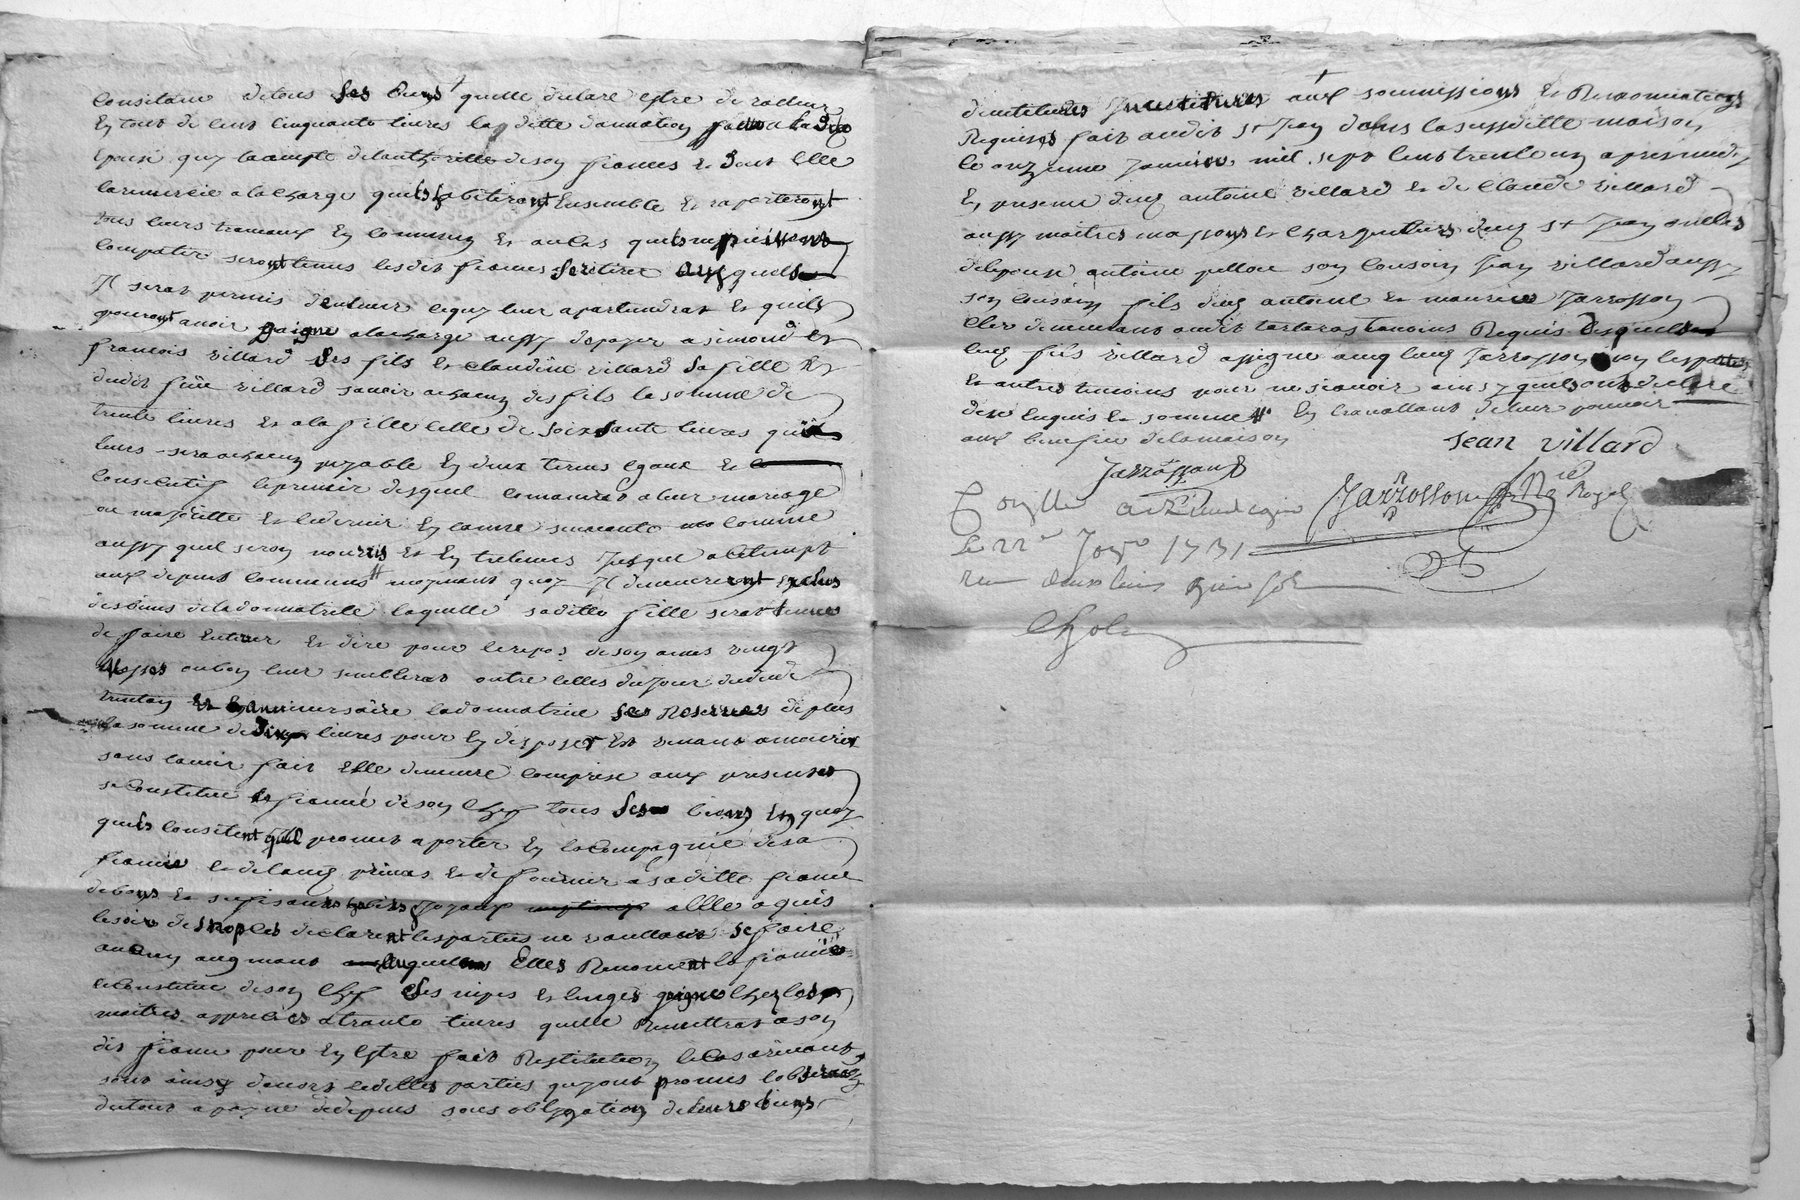 Consitant de tous ses biens quelle declare estre de valleur
En tout de cent cinquante livres laqditte donnation faitte a la ditte
Epouse quy laccepte de lauthoritte de son fiances et dont elle
laremercie a la charge quils habiteront Ensemble et raporteront
tous leurs travaux En commung et au cas quils ne puissent
compatir seront tenus lesdit fiances se retirer auxquels
Il serat permis demmener cequy leur apartiendrat et quils
pouront avoir gaigne a la charge aussy de payer a simond et
francois villard ses fils et claudine villard sa fille et
dudit feu villard savoir achacun des fils la somme de
trente livres et a la fille celle de soixsante livres quil
leurs sera achacun payable En deux termes Egaux et
Consecutif le premier desquel comancerat a leur mariage
ou majoritte et le dernier En lannee suivante comme
aussy quel seron nourris et Entretenus jusque ace tempt
aux depens communs moyenant quoy Il demeureront exclus
des biens de la donnatrice laquelle saditte fille serat tenue
de faire Enterer et dire pour le repos de son ames vingt
messes ou bon leur semblerat outre celles du jour du dude
trentain et anniversaire la donnatrice se reserves de plus
la somme de dix livres pour En disposer Et venant a mourir
sans lavoir fait Elle demeure comprise aux presentes
se constitue le fiancé de son chef tous ses biens En quoy
quils consitent quil promet aporter En la compagnie de sa
fiancée et de la nourir et de fournir a saditte fiance
de bons et sufisants habits joyaux alle aquis
le soir des nopces declarent les parties ne voulloir se faire
aucun augment auquel Elles Renoncent la fiancée
ce constitue de son chef ses nipes et linges gaignes chez les
maitres apprecies a trante livres quelle Remettrat a son
dit fiance pour En estre fait Restitution le cas arrivant
sont ainsy demeurs lesdittes parties qu'ont promis lobserver
du tout a peyne de depens sous obligation de leurs biens
dentitudes Investitures aux soumissions et Renonciations
Requises fait audit st Jean dans la susditte maison
le onzieme Janvier mil sept cent trente un apres midy
En presence dud antoine villard et de Claude villard
aussy maitres massons et charpentiers dud st Jean oncles
de lepouse antoine pelloue son cousin Jean villard aussy
son cousin fils dud antoine et maurice Jarrosson
clerc demeurant audit tartaras temoins Requis desquels
led fils villard a signe aveq led Jarrosson non les parties
et autres temoins pour ne scavoir ainsy quils ont declare
de ce Enquis et sommes En travaillant de leur pouvoir
aux benefice de la maison
Jean villard
Jarrosson
Jarrosson Nre Royal
Conttlle a Rivedegier
le 22e Janv 1731